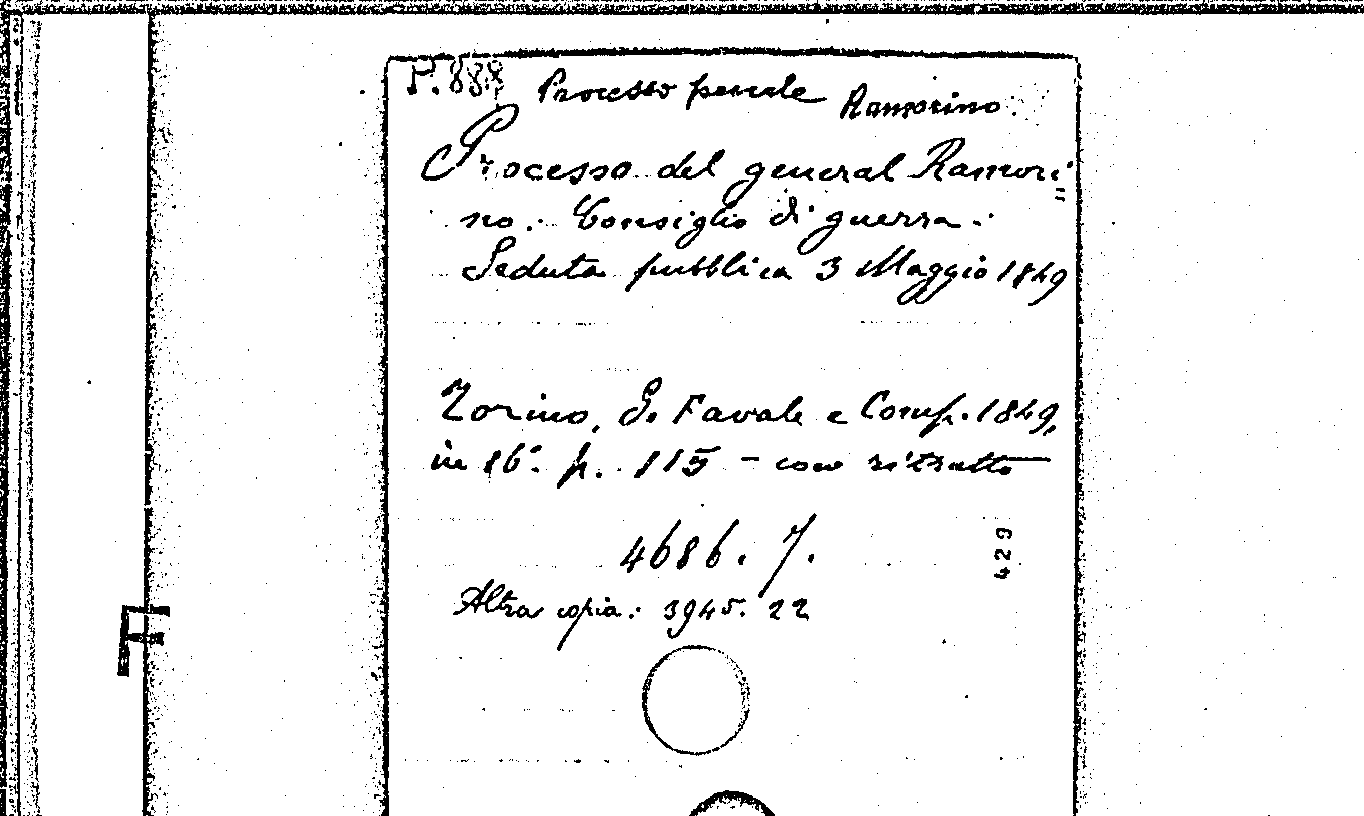 P. 888 Processo penale Ramorino.
Processo del general Ramori=
no. Consiglio di guerra.
Seduta pubblica 3 Maggio 1849
Torino, G. Favale e Comp. 1849,
in 16.° p. 115 - con ritratto
4686. 7.
429
Altra copia: 3945. 22